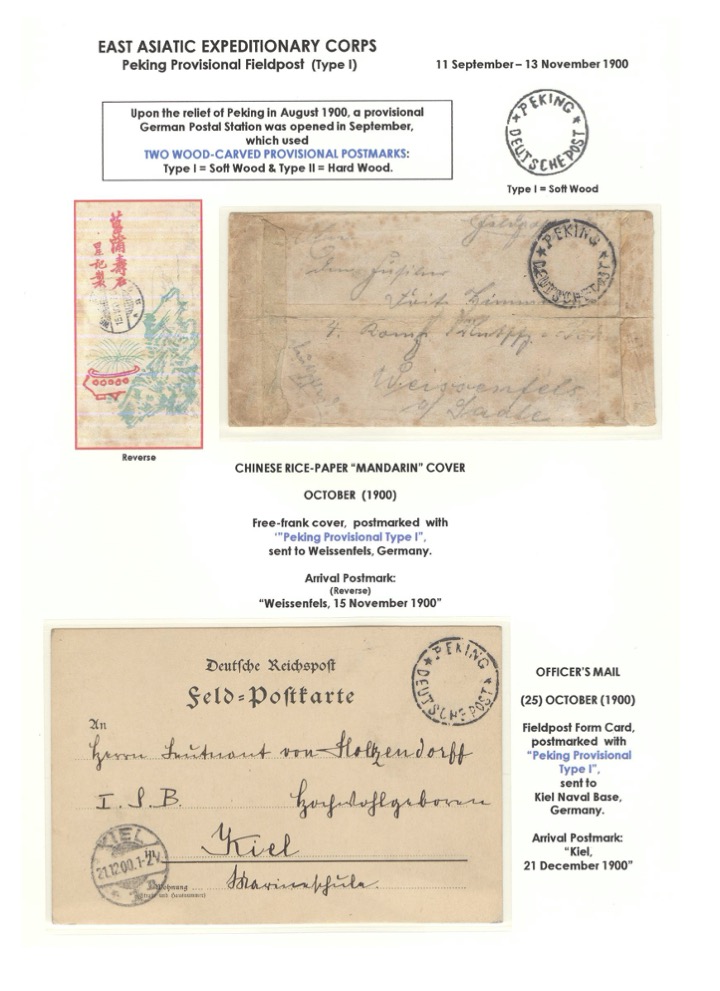 EAST ASIATIC EXPEDITIONARY CORPS
Peking Provisional Fieldpost (Type I)
11 September – 13 November 1900
Upon the relief of Peking in August 1900, a provisional
German Postal Station was opened in September,
which used
TWO WOOD-CARVED PROVISIONAL POSTMARKS:
Type I = Soft Wood & Type II = Hard Wood.
★ PEKING ★
DEUTSCHE POST
Type I = Soft Wood
菖蒲壽石
星記製
Reverse
★ PEKING ★
DEUTSCHE POST
Feldpost
dem Füsilier
Fritz
4. Komp.
Weissenfels
a/ Saale
CHINESE RICE-PAPER “MANDARIN” COVER
OCTOBER (1900)
Free-frank cover, postmarked with
‘”Peking Provisional Type I”,
sent to Weissenfels, Germany.
Arrival Postmark:
(Reverse)
“Weissenfels, 15 November 1900”
★ PEKING ★
DEUTSCHE POST
Deutsche Reichspost
Feld-Postkarte
An
Herrn Leutnant von Holtzendorff
I. S. B. Hochwohlgeboren
Kiel
Marineschule.
KIEL
21.12.00.1-2N.
Wohnung
OFFICER’S MAIL
(25) OCTOBER (1900)
Fieldpost Form Card,
postmarked with
“Peking Provisional
Type I”,
sent to
Kiel Naval Base,
Germany.
Arrival Postmark:
“Kiel,
21 December 1900”